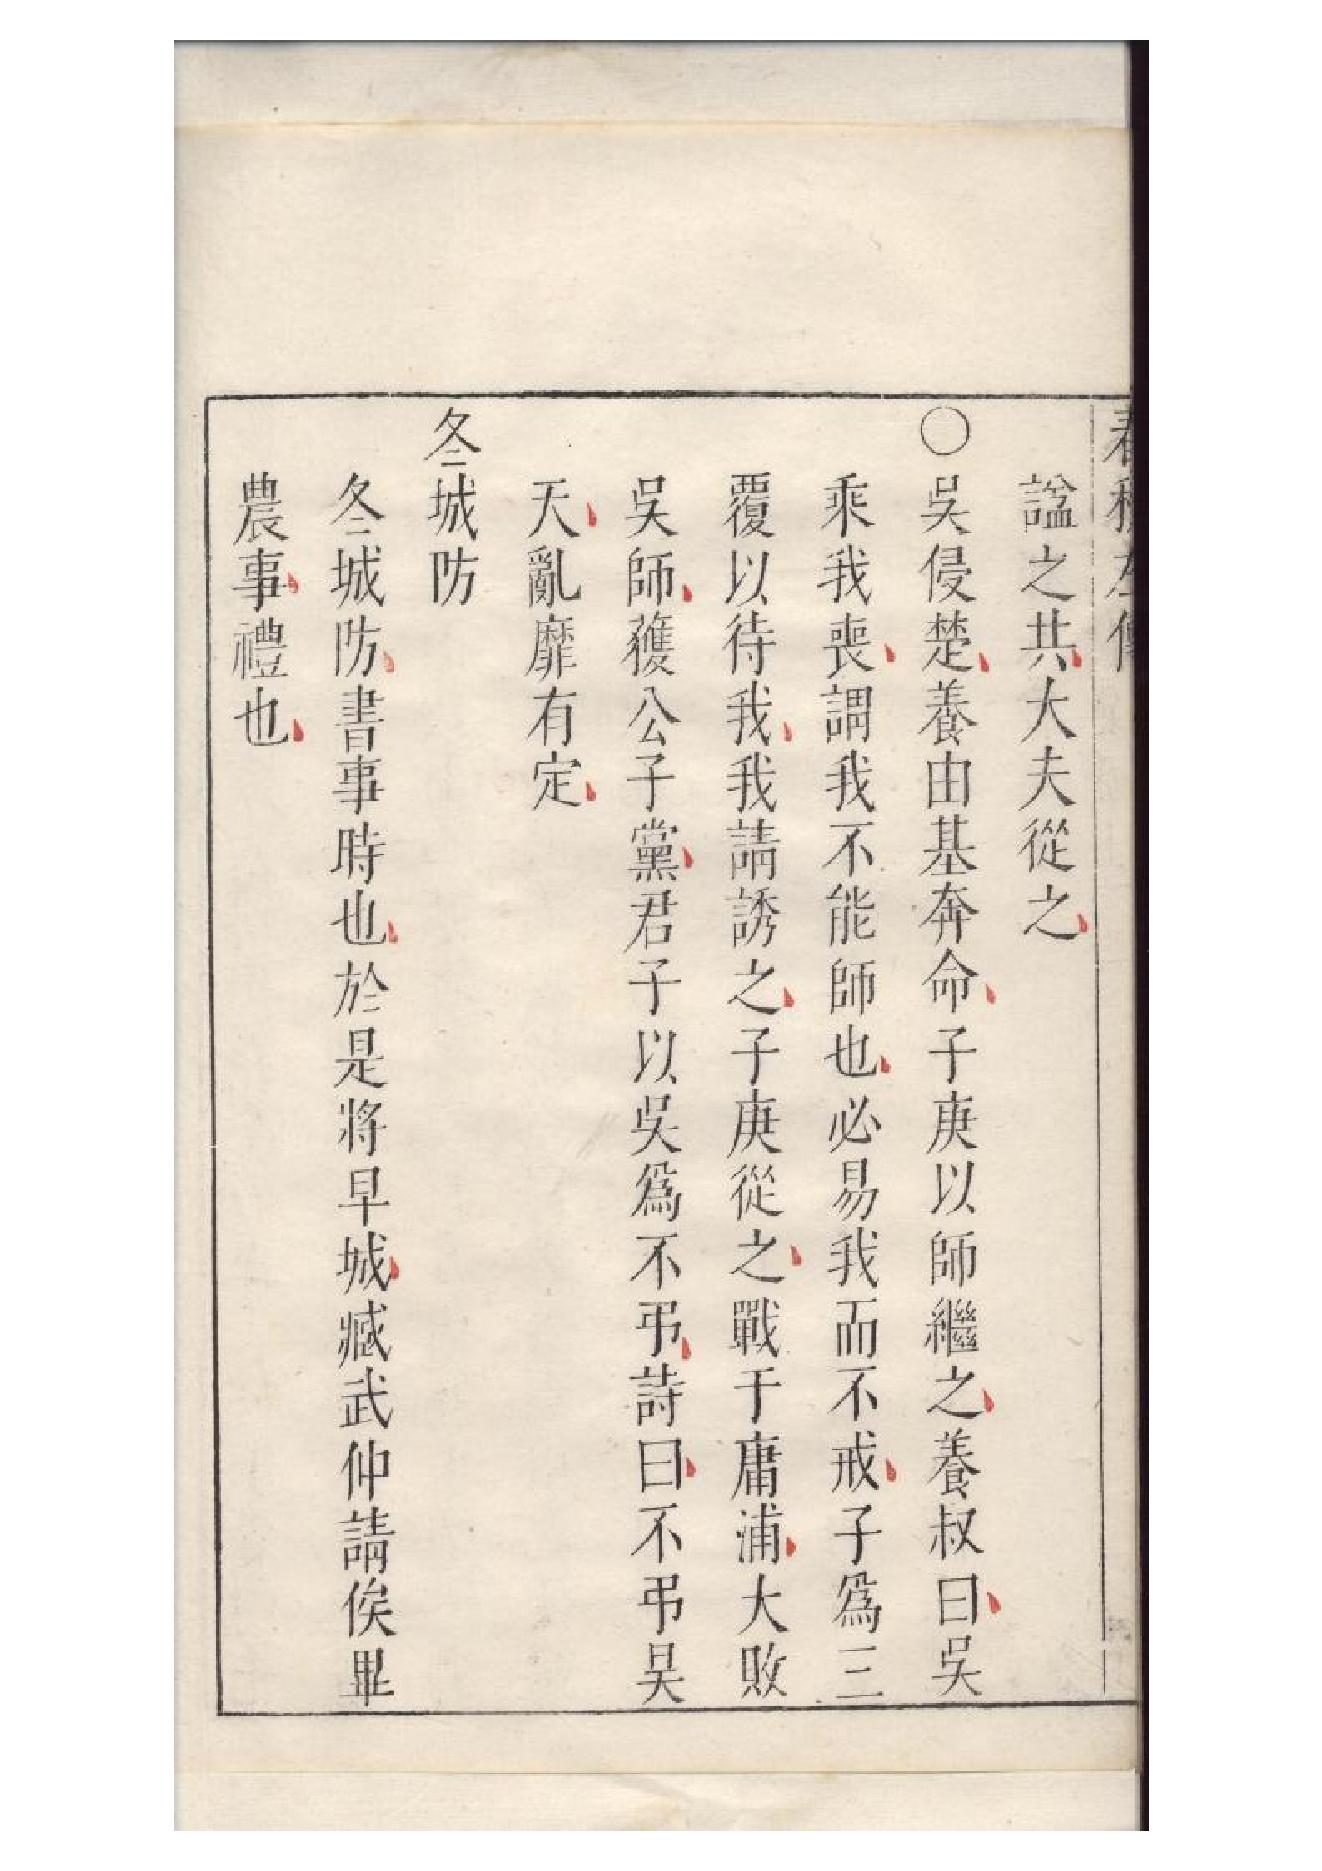 春秋左傳
諡之共大夫從之
〇吳侵楚養由基奔命子庚以師繼之養叔曰吳
乘我喪謂我不能師也必易我而不戒子爲三
覆以待我我請誘之子庚從之戰于庸浦大敗
吳師獲公子黨君子以吳爲不弔詩曰不弔昊
天亂靡有定
冬城防
冬城防書事時也於是將早城臧武仲請俟畢
農事禮也